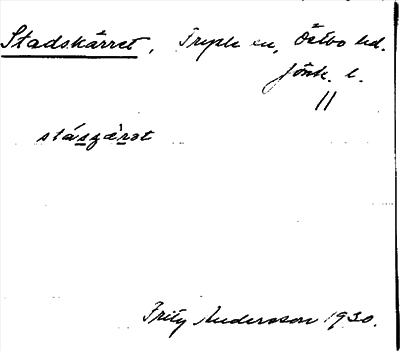 Stadskärret, Tryde sn, Östbo hd.
Jönk. l.
11
stásȥàrət
Fritz Andersson 1930.